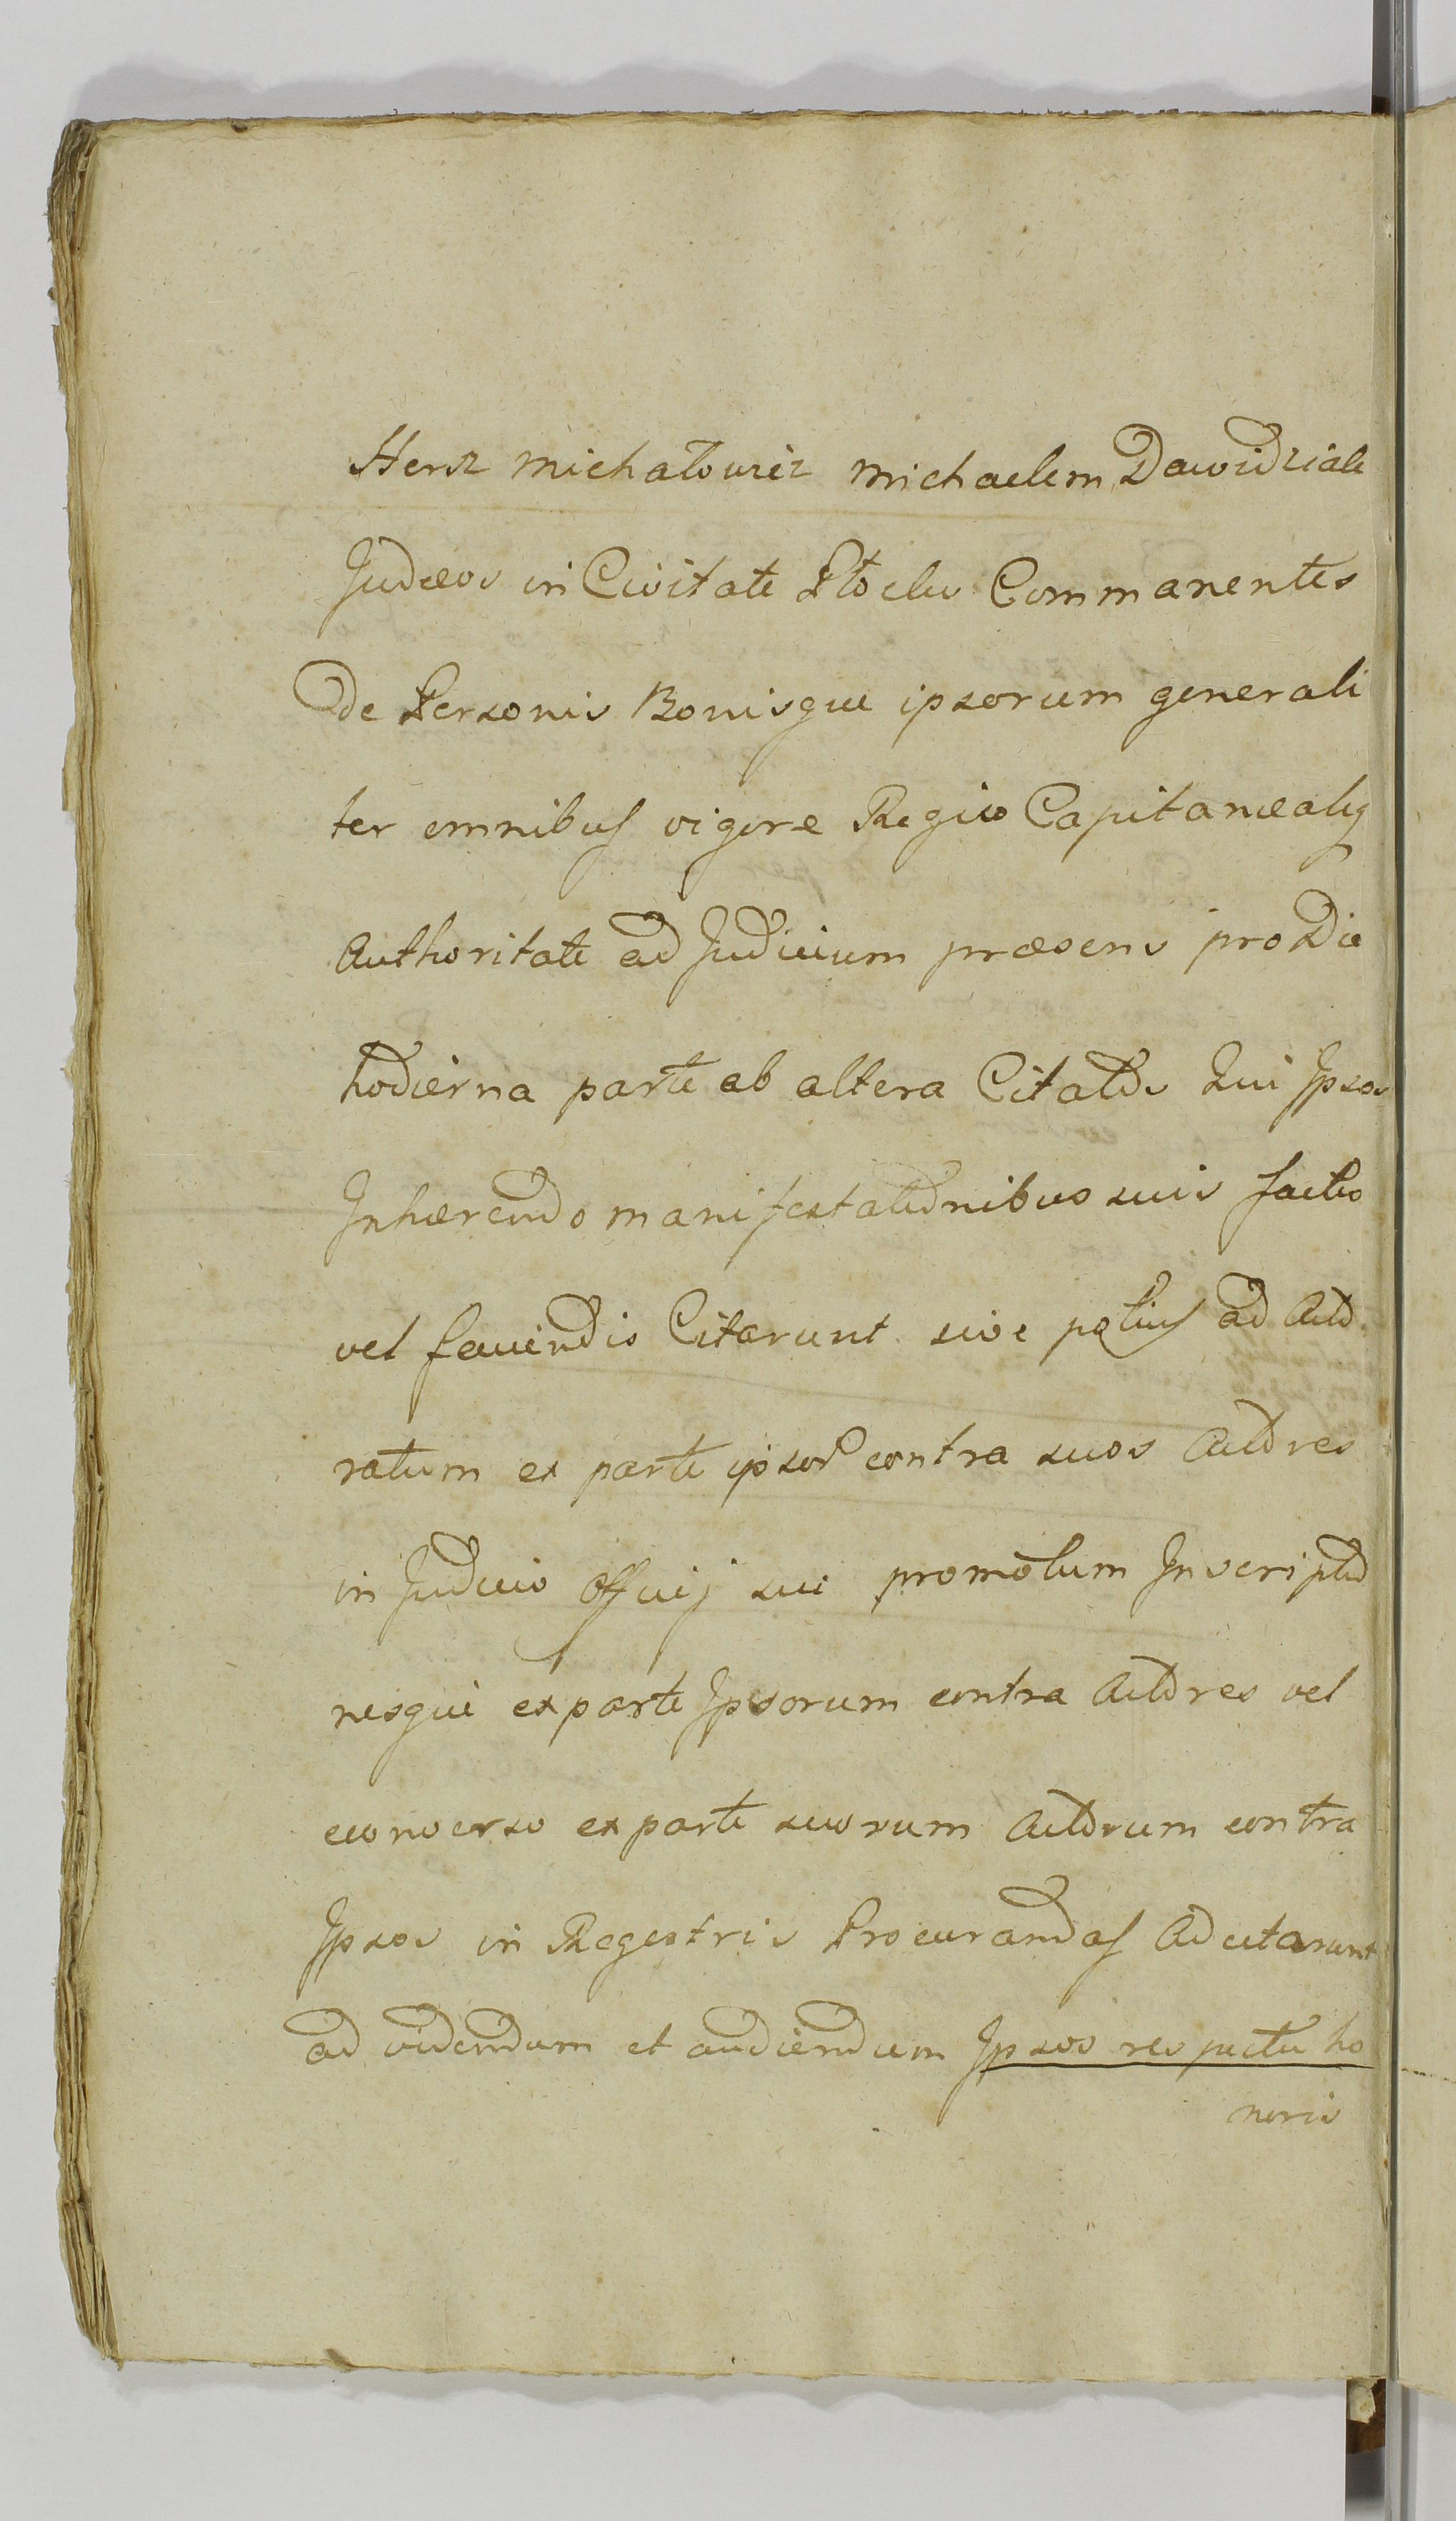 Hersz Michałowicz Michaelem Dawidziak
Judæos in Civitate Płocks Commanentes
De Personis Bonisque ipsorum generali
ter omnibus vigore Regio Capitanealis
Authoritate ad Judicium præsens pro Die
hodierna parte ab altera Citatos Qui Ipsos
Inhærendo manifestationibus suis factis
vel faciendis Citarunt sive potius ad Acto
ratum ex parte ipsor contra suos Actores
in Judicio Officij sui promotum Inscriptio
nesque ex parte Ipsorum contra Actores vel
econverso ex parte suorum Actorum contra
Ipsos in Regestris Procurandas Adcitarunt
ad videndum et audiendum Ipsos respectu ho
noris